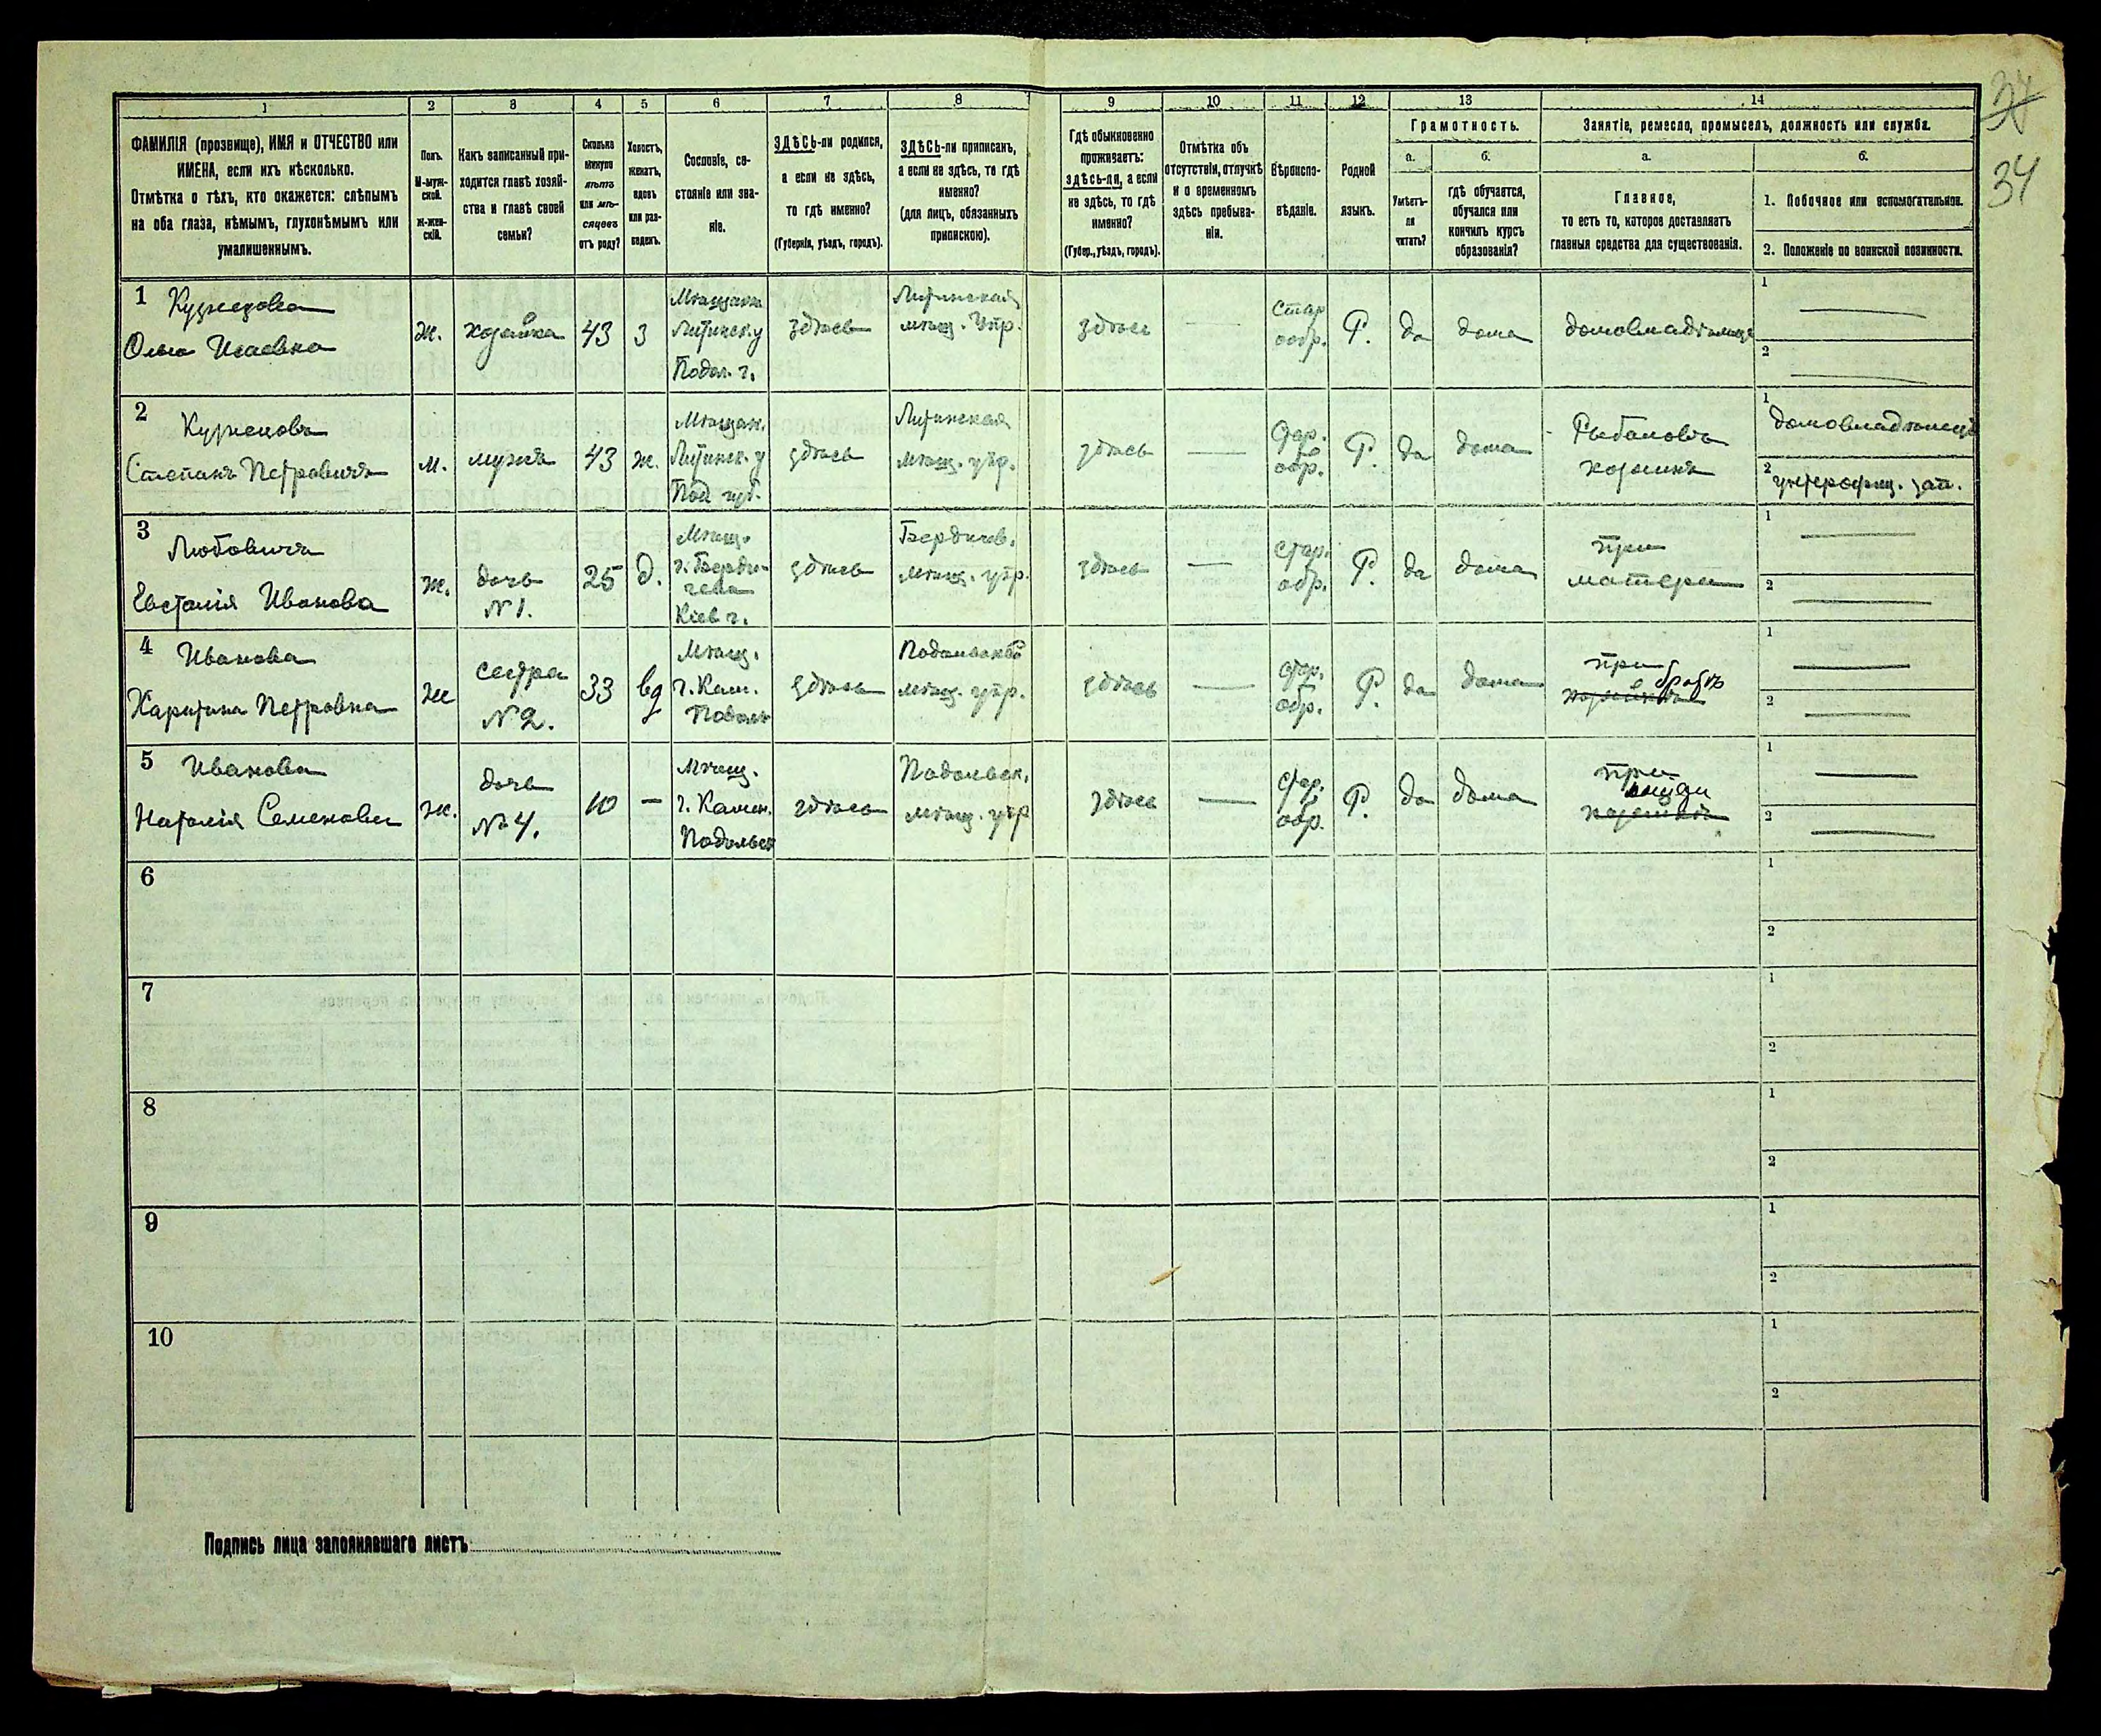 37
34
1 2 3 4 5 6 7 8 9 10 11 12 13 14
ФАМИЛІЯ (прозвище), ИМЯ и ОТЧЕСТВО или
ИМЕНА, если ихъ нѣсколько.
Отмѣтка о тѣхъ, кто окажется: слѣпымъ
на оба глаза, нѣмымъ, глухонѣмымъ или
умалишеннымъ.
Полъ.
М-муж-
ской.
Ж-жен-
скій.
Какъ записанный при-
ходится главѣ хозяй-
ства и главѣ своей
семьи?
Сколько
минуло
лѣтъ
или мѣ-
сяцевъ
отъ роду?
Холостъ,
женатъ,
вдовъ
или раз-
веденъ.
Сословіе, со-
стояніе или зва-
ніе.
ЗДѢСЬ-ли родился,
а если не здѣсь,
то гдѣ именно?
(Губернія, уѣздъ, городъ).
ЗДѢСЬ-ли приписанъ,
а если не здѣсь, то гдѣ
именно?
(для лицъ, обязанныхъ
припискою).
Гдѣ обыкновенно
проживаетъ:
здѣсь-ли, а если
не здѣсь, то гдѣ
именно?
(Губер., уѣздъ, городъ).
Отмѣтка объ
отсутствіи, отлучкѣ
и о временномъ
здѣсь пребыва-
ніи.
Вѣроиспо-
вѣданіе.
Родной
языкъ.
Грамотность.
а. б.
Умѣетъ-
ли
читать?
гдѣ обучается,
обучался или
кончилъ курсъ
образованія?
Занятіе, ремесло, промыселъ, должность или служба.
а. б.
Главное,
то есть то, которое доставляетъ
главныя средства для существованія.
1. Побочное или вспомогательное.
2. Положеніе по воинской повинности.
1 Кузнецова
Ольга Исаевна
ж.
хозяйка
43
з
Мѣщанка
Литинск. у
Подол. г.
здѣсь
Литинская
мѣщ. Упр.
здѣсь
—
Стар
обр.
Р.
да
дома
домовладѣлица
1 —
2 —
2 Кузнецовъ
Степанъ Петровичъ
м.
мужъ
43
ж.
Мѣщан.
Литинск. у
Под. губ.
здѣсь
Литинская
мѣщ. упр.
здѣсь
—
Стар.
обр.
Р.
да
дома
Рыбаковъ
хозяинъ
1 домовладѣлецъ
2 унтерофиц. зап.
3 Любовичъ
Евсталія Иванова
ж.
дочь
№ 1.
25
д.
Мѣщ.
г. Берди-
чева
Кіев г.
здѣсь
Бердичев.
мѣщ. упр.
здѣсь
—
стар.
обр.
Р.
да
дома
при
матери
1 —
2 —
4 Иванова
Харитина Петровна
ж
сестра
№ 2.
33
вд
Мѣщ.
г. Кам.
Подол
здѣсь
Подольской
мѣщ. упр.
здѣсь
—
стар.
обр.
Р.
да
дома
при братѣ
1 —
2 —
5 Иванова
Наталія Семенова
ж.
дочь
№ 4.
10
—
Мѣщ.
г. Камен.
Подольск
здѣсь
Подольск.
мѣщ. упр
здѣсь
—
стар.
обр.
Р.
да
дома
при
1 —
2 —
6
1
2
7
1
2
8
1
2
9
1
2
10
1
2
Подпись лица заполнявшаго листъ